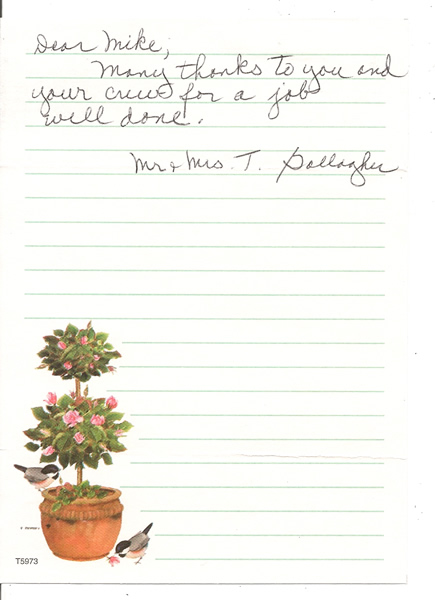 Dear Mike,
Many thanks to you and
your crew for a job
well done.
Mr & Mrs. T. Gallagher
T5973